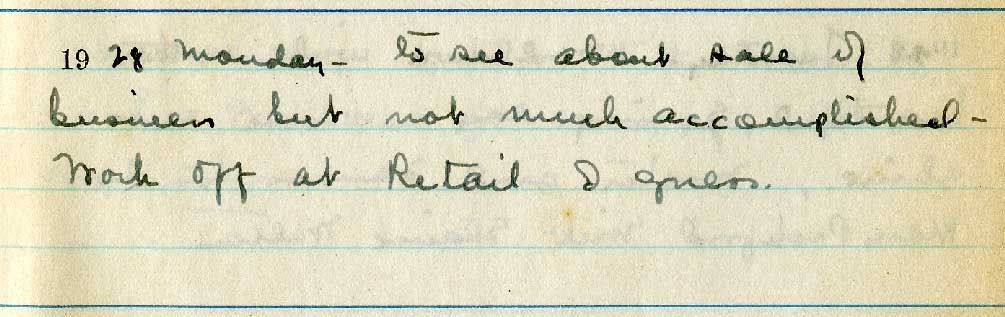 1928 Monday - to see about sale of
business but not much accomplished -
Work off at Retail I guess.